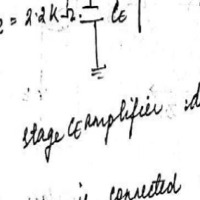 = 2.2K Ω CE
stage CE amplifier
is connected